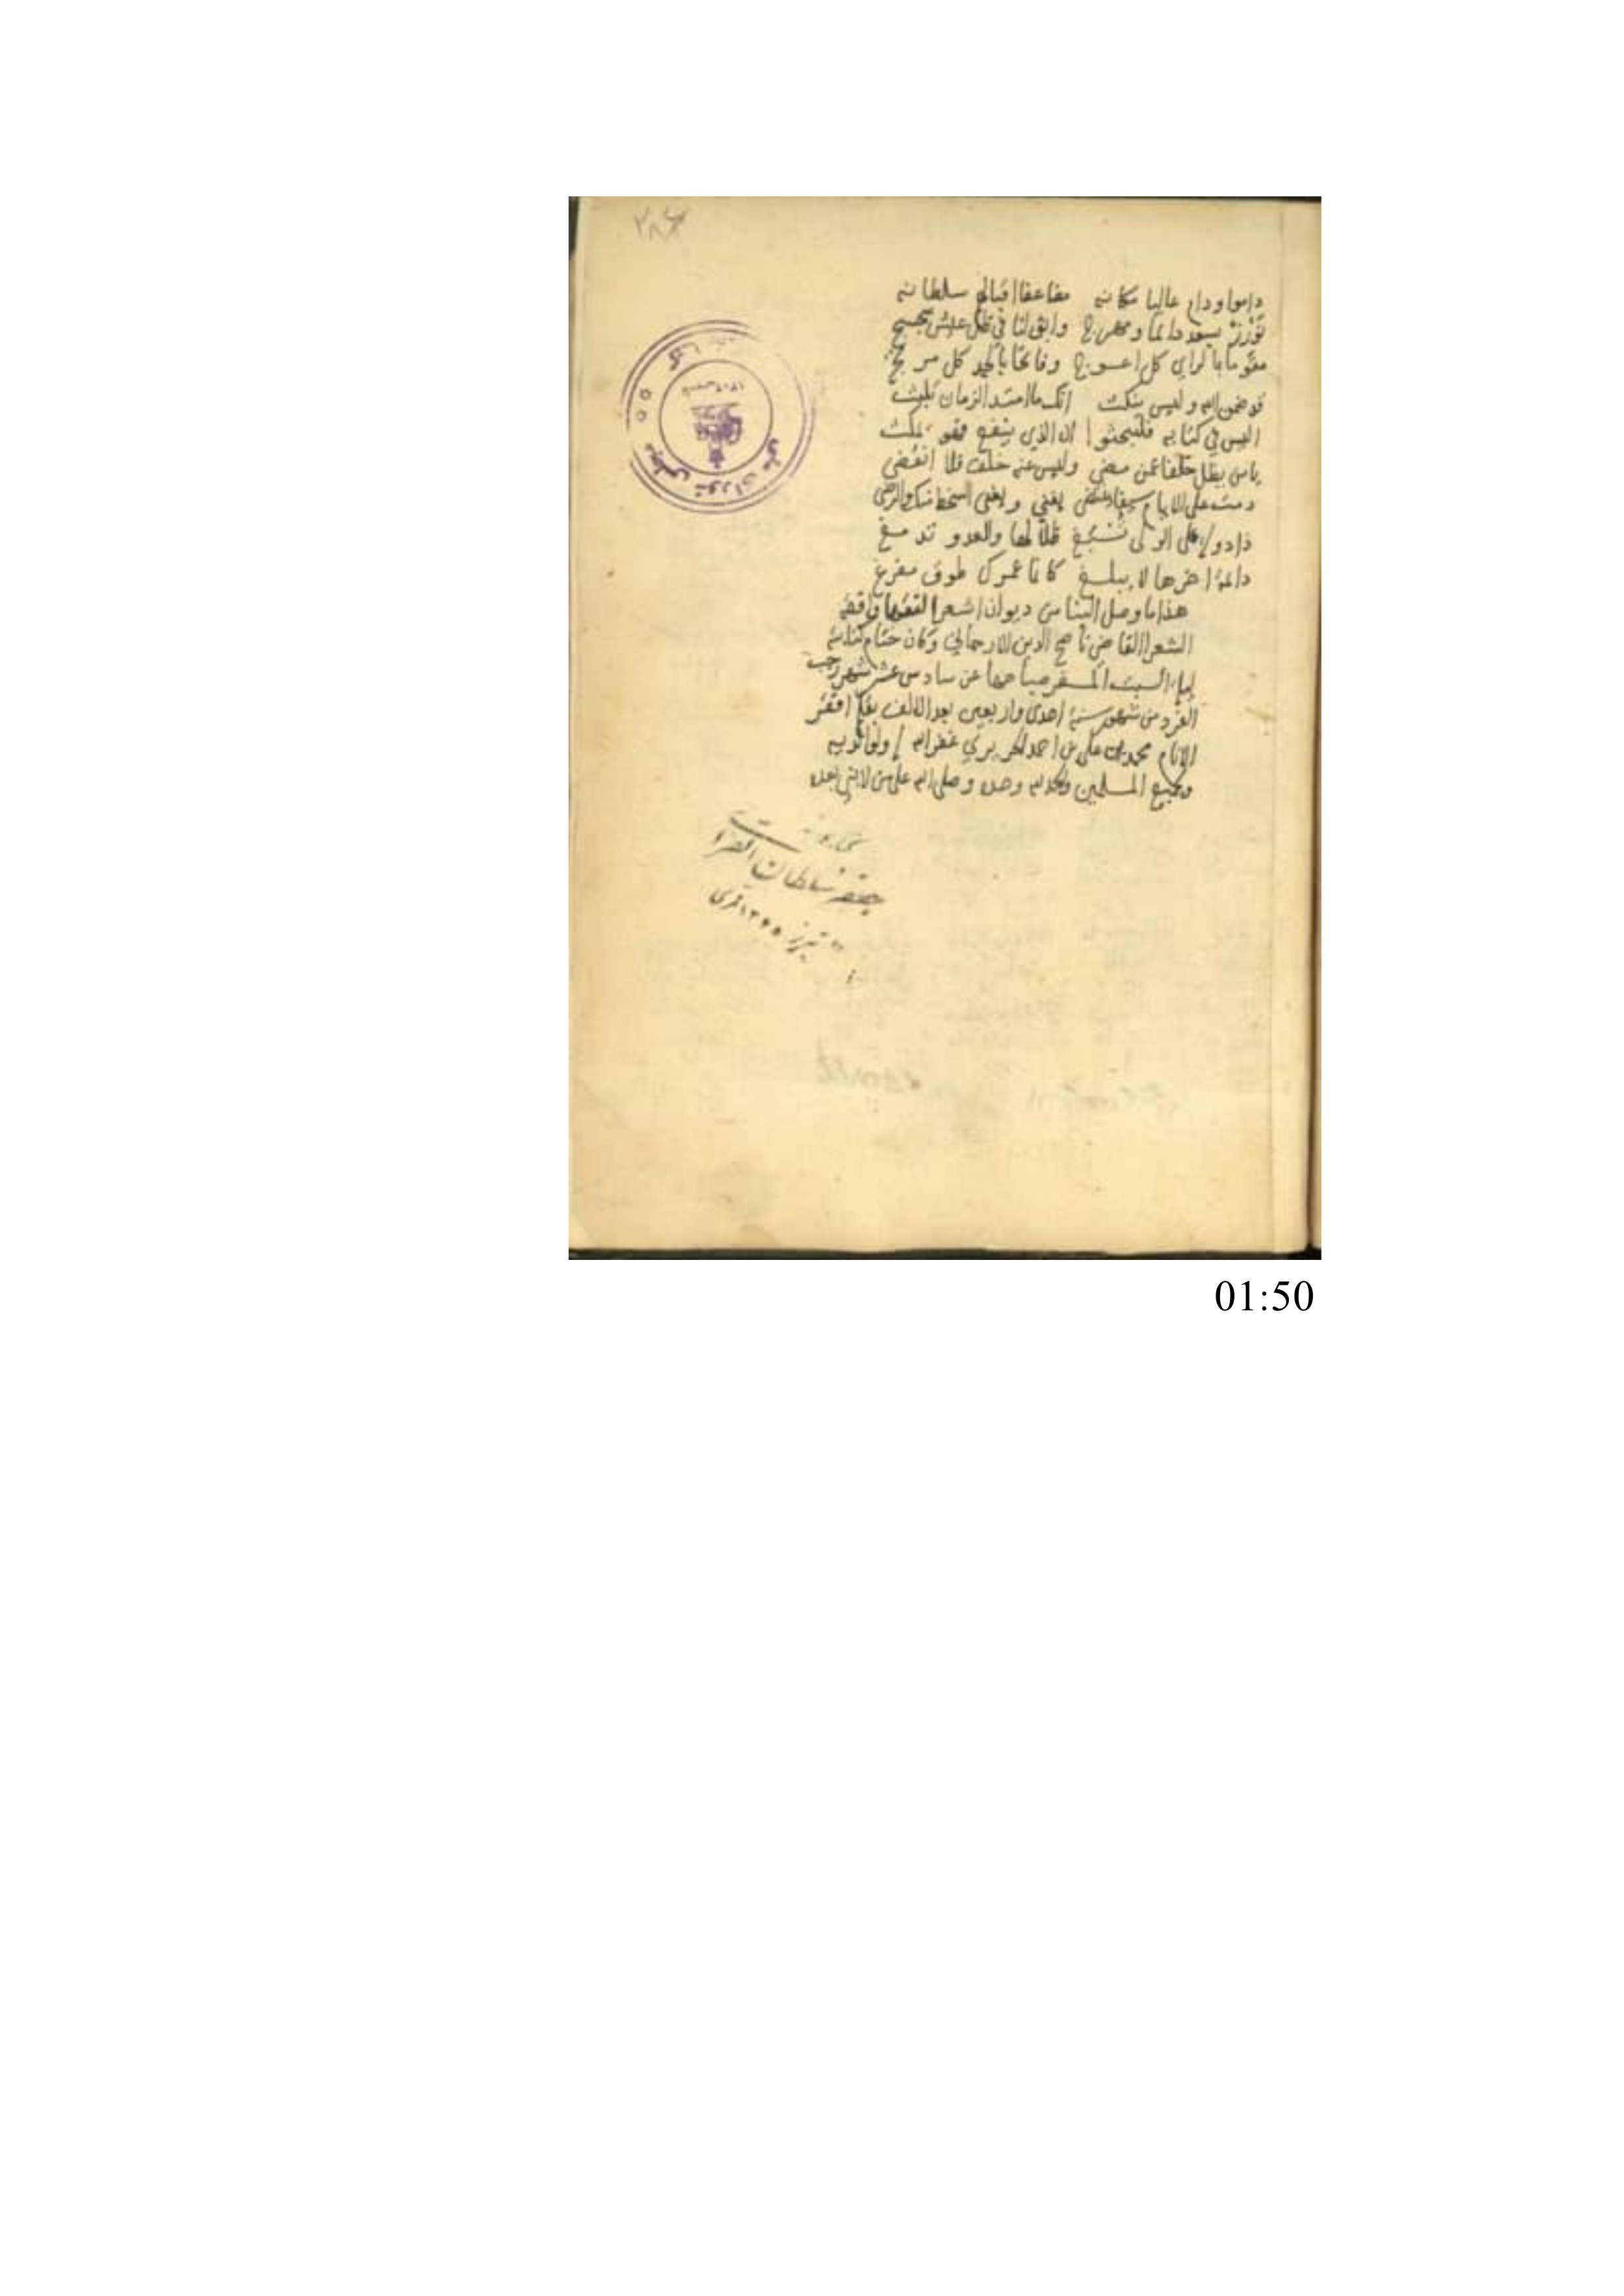 داموا ودام عاليا مكانه مضاعفا اقباله سلطانه
بسعد دائما وابق لنا في ظل عيش سجسج
مقوما بالراي كل اعوج وفاتحا بالجد كل مرتج
قد ضمن الله وليس ينكث انك ما امتد الزمان تلبث
اليس في كتابه فليبحثوا ان الذي ينفع فهو يمكث
يا من يظل خلفا عمن مضى وليس عنه خلف فلا انقضى
دمت على الايام سيفا منتضى يفني ويغني السخط منك والرضى
ذا دولة على الولى تسبغ ظلالها والعدو تدمغ
دائمة اخرها لا يبلغ كانما عمرك طوق مفرغ
هذا ما وصل الينا من ديوان اشعر الفقها وافقه
الشعرا القاضي ناصح الدين الارجاني وكان ختام كتابته
ليلة السبت المسفر صباحها عن سادس عشر شهر رجب
الفرد من شهور سنة احدى واربعين بعد الالف بقلم افقر
الانام محمد بن علي بن احمد الحريري غفر الله له ولوالديه
وجميع المسلمين والحمد لله وحده وصلى الله على من لا نبي بعده
جعفر سلطان القرائى
تبريز ١٣٦٥ قمرى
مجلس شوراى ملى
01:50